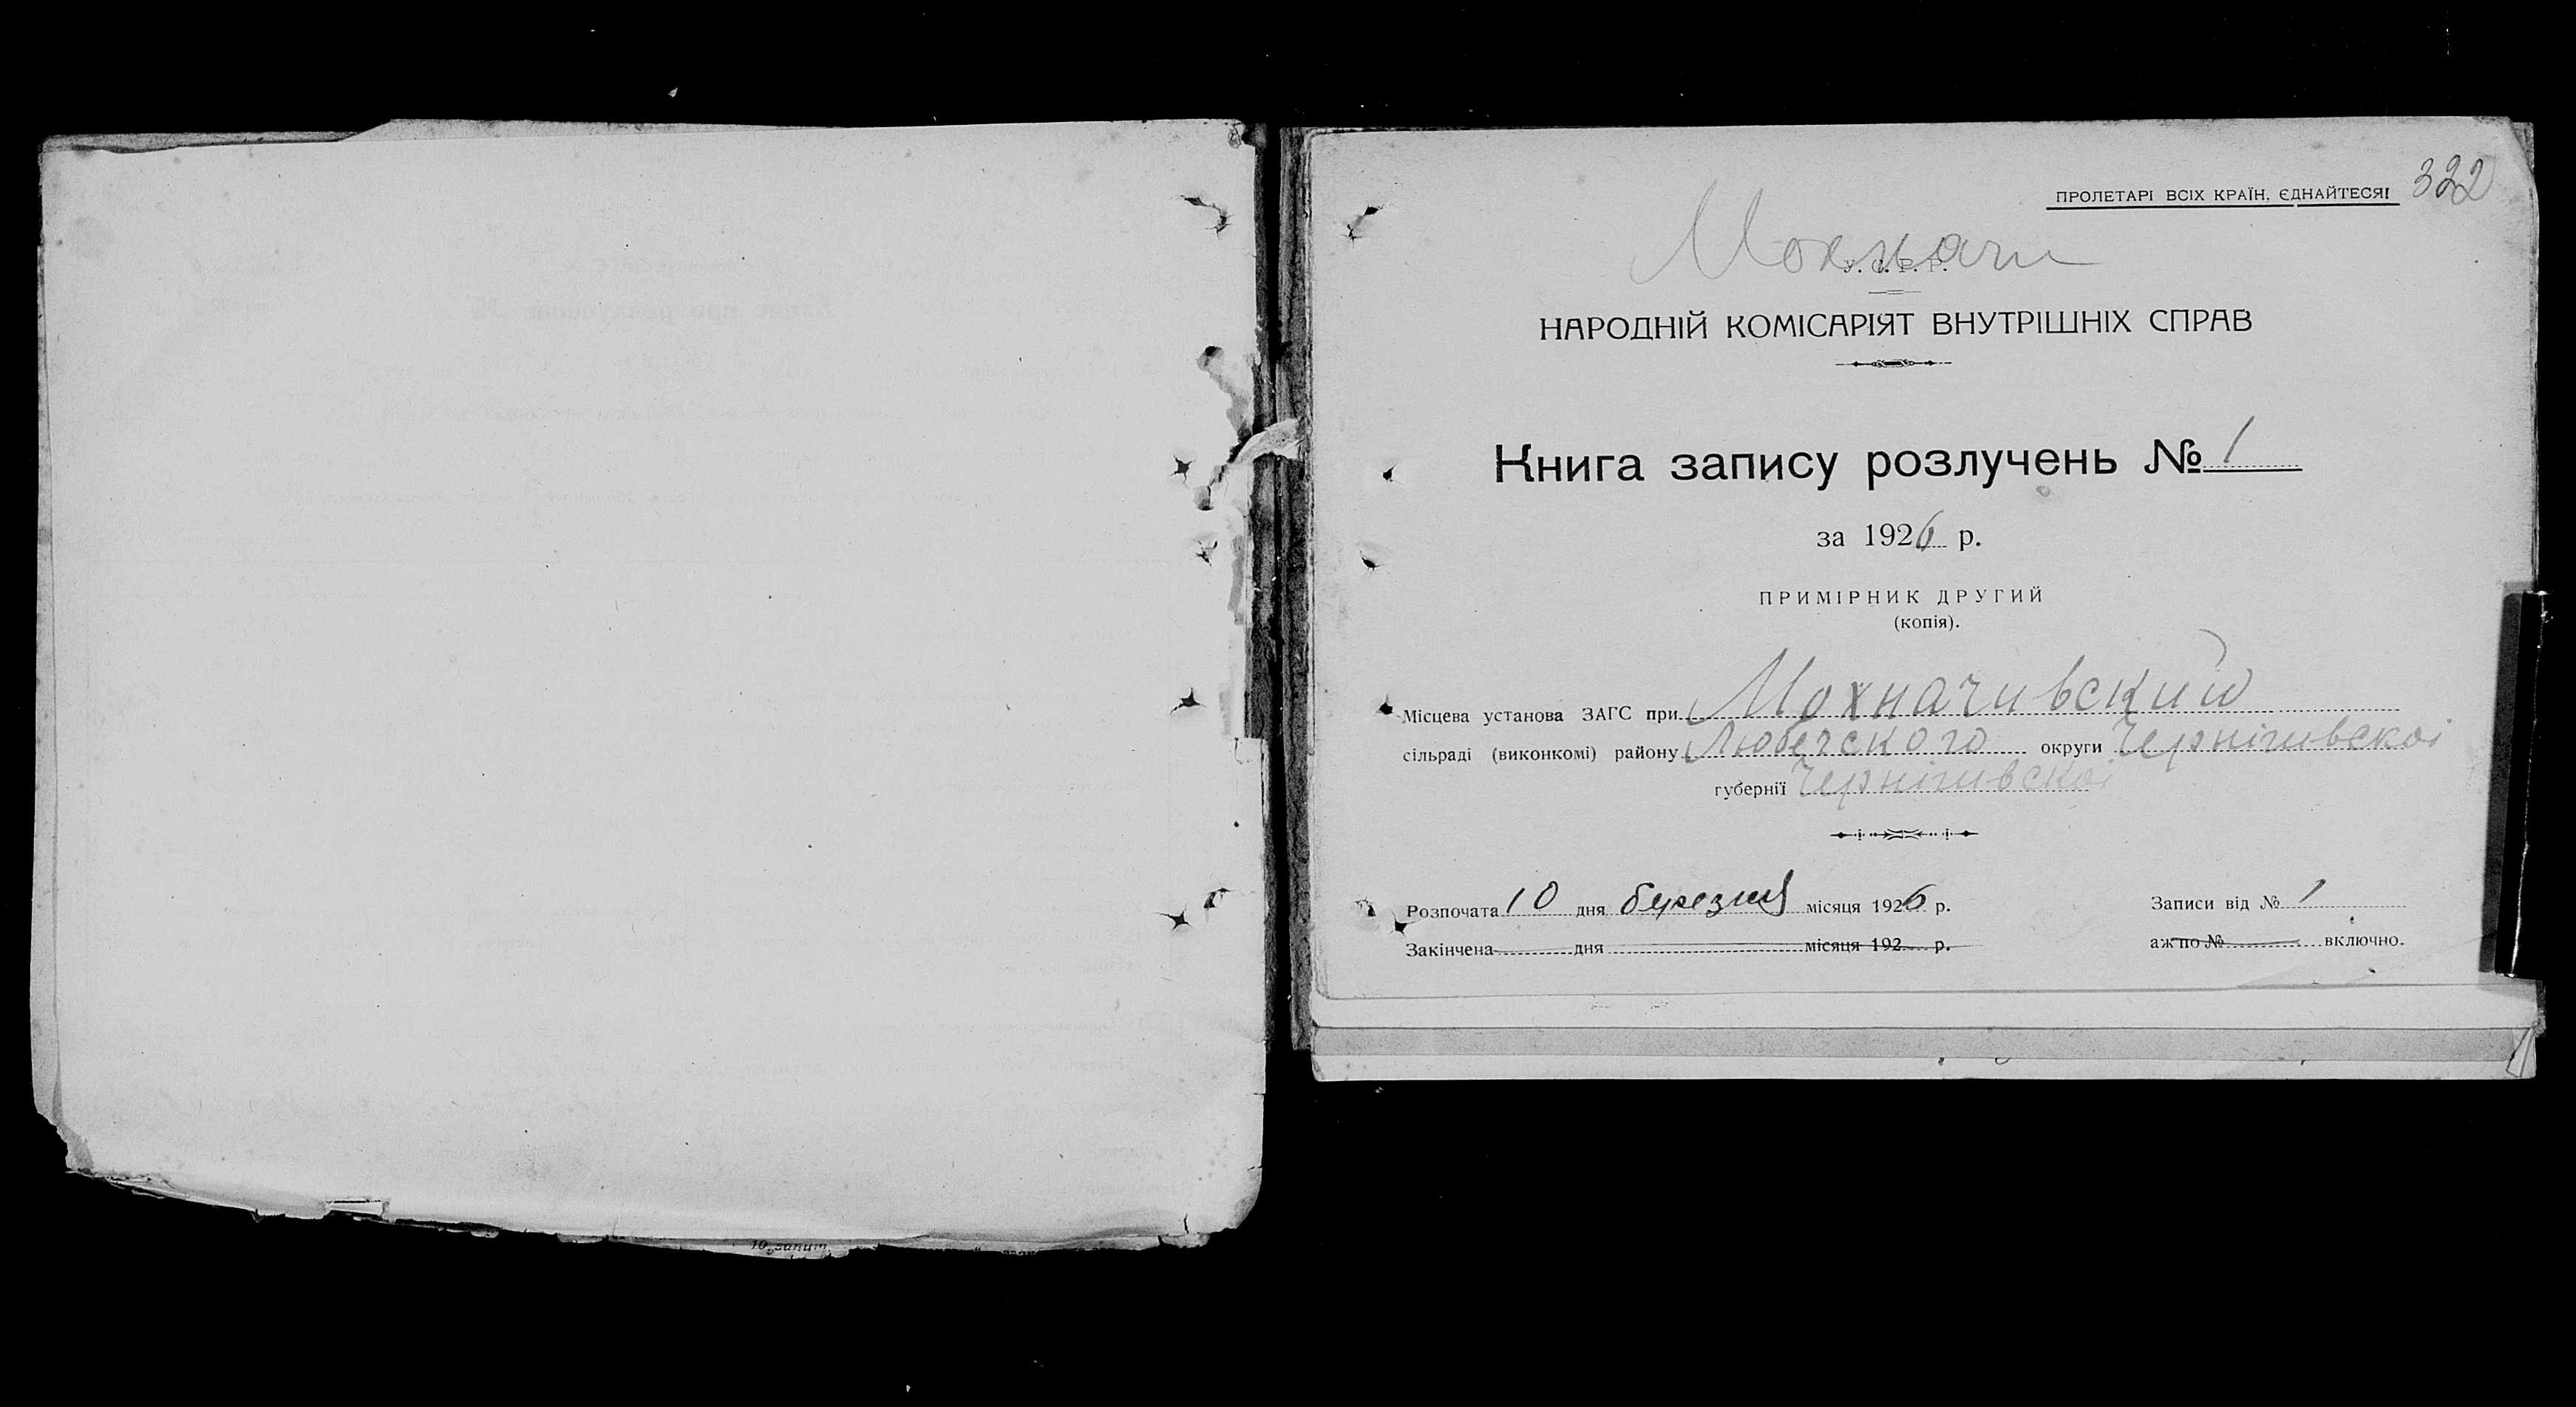 ПРОЛЕТАРІ ВСІХ КРАЇН, ЄДНАЙТЕСЯ! 322
Мохначи
У. С. Р. Р.
НАРОДНІЙ КОМІСАРІЯТ ВНУТРІШНІХ СПРАВ
Книга запису розлучень № 1
за 1926 р.
ПРИМІРНИК ДРУГИЙ
(копія).
Місцева установа ЗАГС при Мохначивский
сільраді (виконкомі) району Любечского округи Чернігивскоі
губернії Чернігивскоі
Розпочата 10 дня березня місяця 1926 р. Записи від № 1
Закінчена дня місяця 192 р. аж по № включно.
10 запит